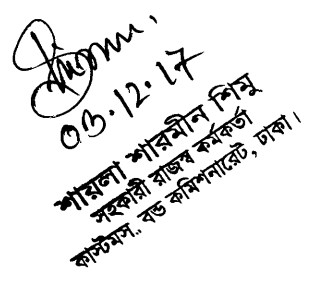 03.12.17
শায়লা শারমীন শিমু
সহকারী রাজস্ব কর্মকর্তা
কাস্টমস.. বন্ড কমিশনারেট, ঢাকা।